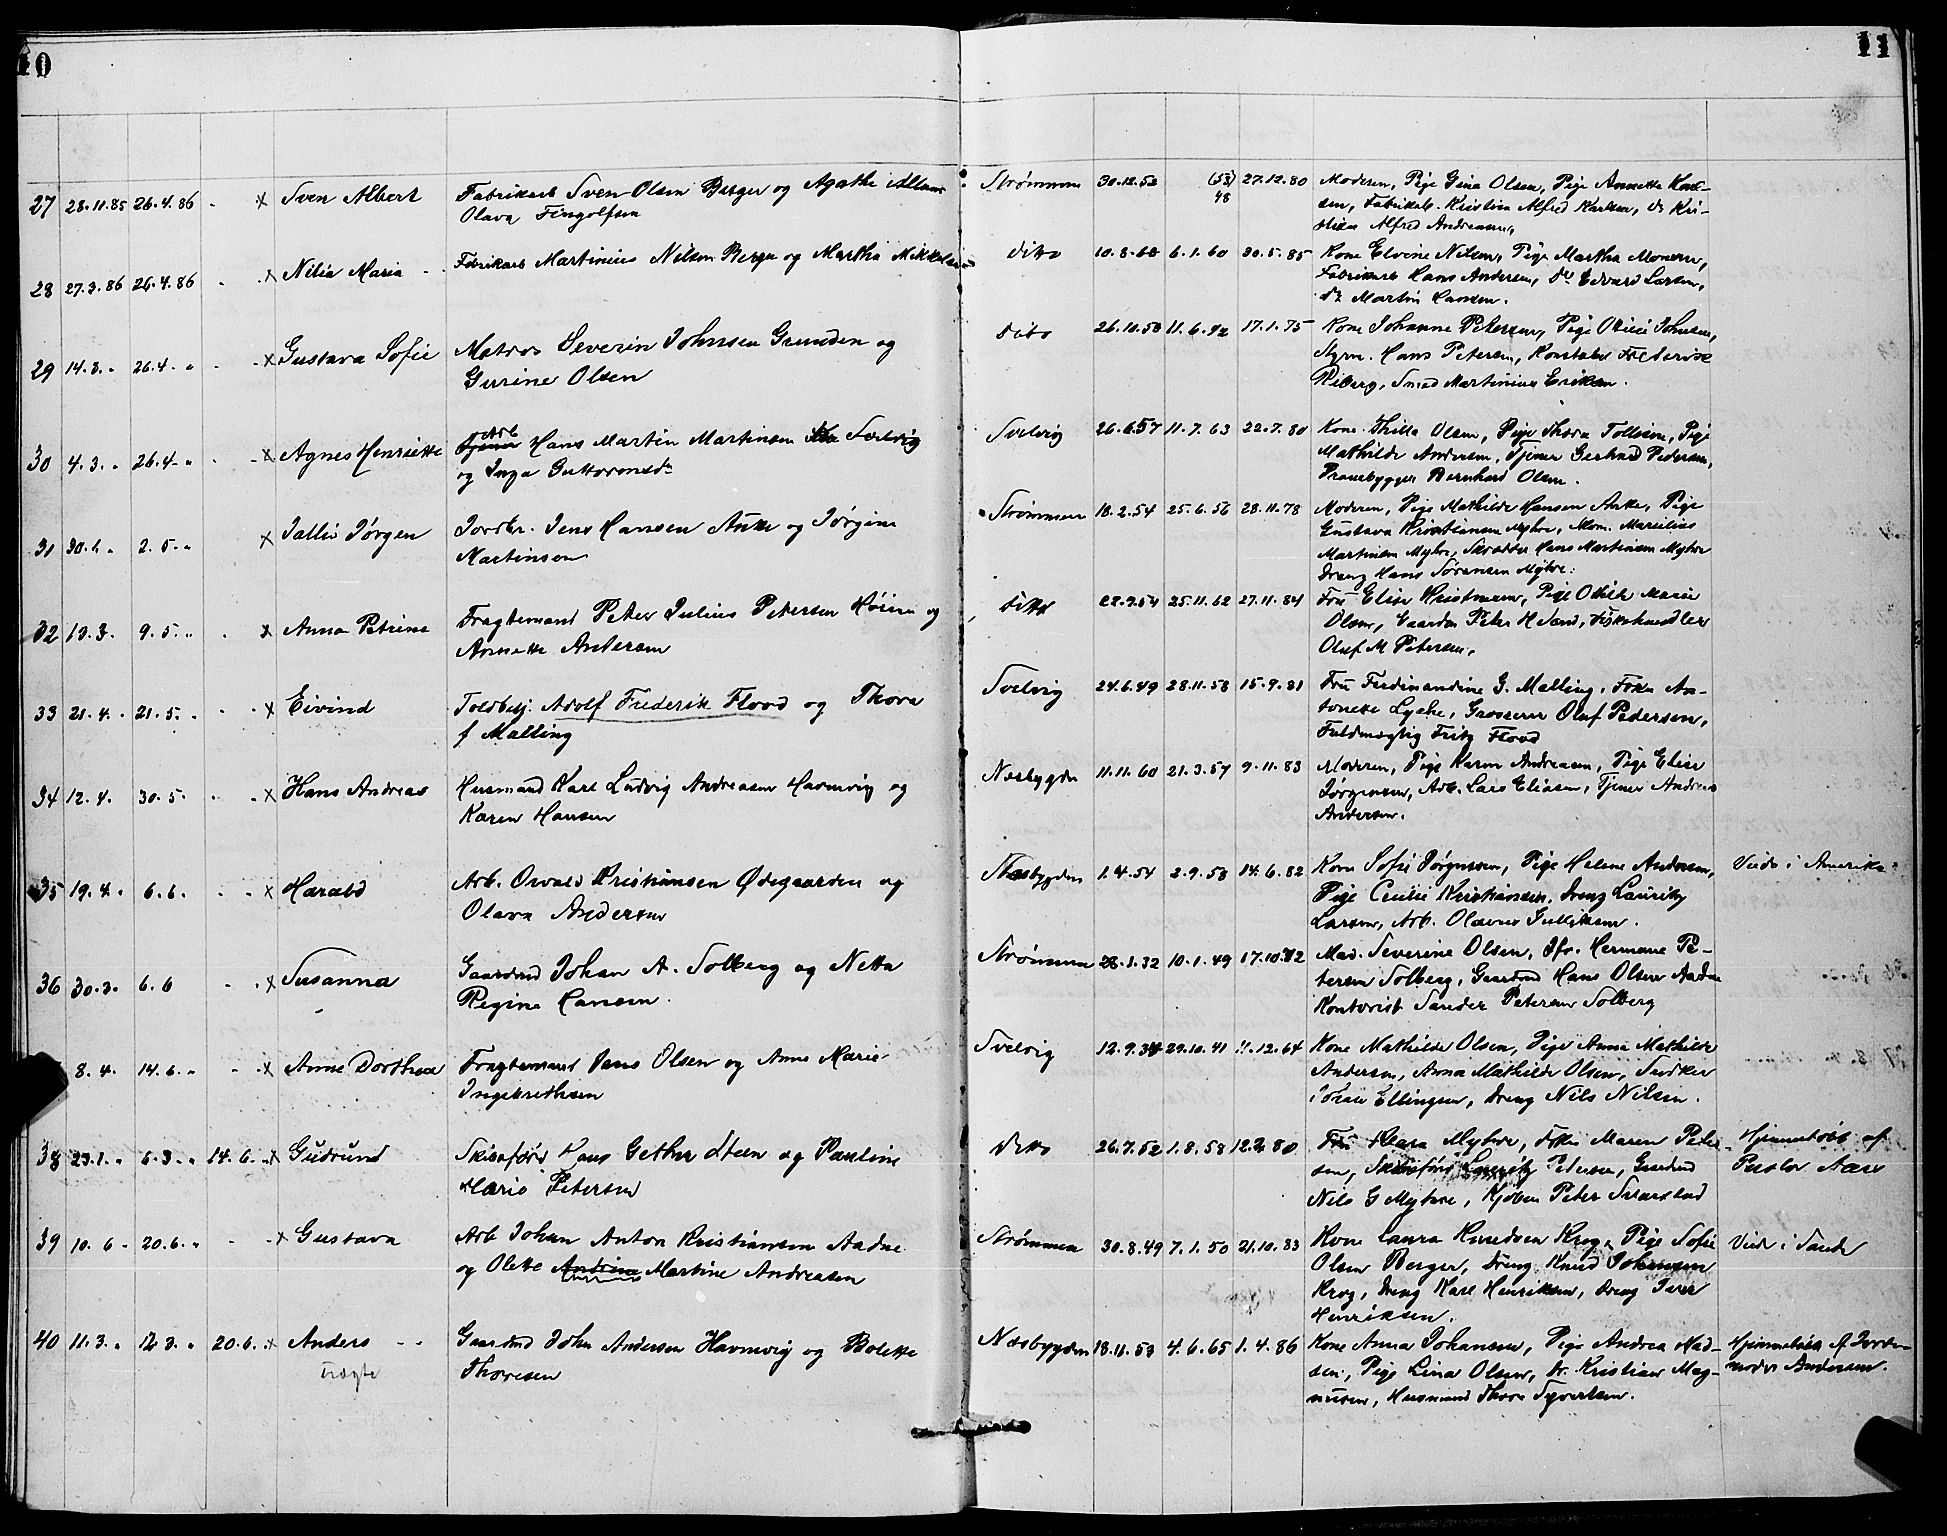 10
11
27 28.11.85 26.4.86 - x Sven Albert Fabrikarb Sven Olsen Berger og Agathe
Olava Fingolfsen
Strømmen 30.12.53 (53) 48 27.12.80 Moderen, Pige Gina Olsen, Pige Annette
sen, Fabrikarb. Kristian Alfred Karlsen, do Kri-
stian Alfred Andreasen,
28 27.3.86 26.4.86 - x Nilia Maria - Fabrikarb Martinius Nilsen Berger og Martha Mikkelsen
ditto 10.8.60 6.1.60 30.5.85 Kone Elvine Nilsen, Pige Martha Monsen,
Fabrikarb Hans Andersen, do Edvard Larsen,
do Martin Hansen.
29 14.3. " 26.4. " - x Gustava Sofie Matros Severin Johnsen Grunden og
Gurine Olsen
ditto 26.10.50 11.6.42 17.1.75 Kone Johanne Petersen, Pige Johnsen,
Styrm. Hans Petersen, Konstabel Frederik
Riberg, Smed Martinius Eriksen.
30 4.3. " 26.4. " - x Agnes Henriette Arb Hans Martin Martinsen Svelvig
og Inga Guttormsdr
Svelvig 26.6.57 11.7.63 22.7.80 Kone Thilla Olsen, Pige Thora Tollefsen, Pige
Mathilde Andersen, Tjener Gerhard Pedersen,
Prambygger Bernhard Olsen.
31 30.1. " 2.5. " x Jallis Jørgen Jordbr. Jens Hansen Anke og Jørgine
Martinsen
Strømmen 18.2.54 25.6.56 28.11.78 Moderen, Pige Mathilde Hansen Anke, Pige
Gustava Kristiansen Myhre, Marelius
Martinsen Myhre, Skrædder Hans Martinsen Myhre
Dreng Hans Sørensen Myhre.
32 13.3. 9.5. " - x Anna Petrine Fragtemand Peter Julius Petersen Høien og
Annette Andersen
ditto 28.9.54 25.11.62 27.11.84 Fru Elise Kristensen, Pige Othilie Marie
Olsen, Gaardm Peter H Sand, Fiskehandler
Oluf M Petersen.
33 21.4. " 21.5. " - x Eivind Toldbetj. Adolf Frederik Flood og Thora
f Malling
Svelvig 24.6.49 28.11.58 15.9.81 Fru Ferdinandine G. Malling, Frøken An-
tonette Lyche, Grosserer Oluf Pedersen,
Fuldmægtig Fritz Flood
34 12.4. 30.5. " - x Hans Andreas Husmand Karl Ludvig Andreasen Havnvig og
Karen Hansen
Nesbygden 11.11.60 21.3.57 9.11.83 Moderen, Pige Karen Andreasen, Pige Elise
Jørgensen, Arb. Lars Eliasen, Tjener Andreas
Andersen.
35 19.4. " 6.6. " - x Harald Arb. Osvald Kristiansen Ødegaarden og
Olava Andersen
Nesbygden 1.4.54 2.9.53 14.6.82 Kone Sofie Jørgensen, Pige Helene Andersen,
Pige Cecilie Kristiansen, Dreng Lauritz
Larsen, Arb. Olavus Gulliksen.
Viede i Amerika
36 30.3. 6.6 - x Susanna Gaardmd Johan A. Solberg og Netta
Regine Hansen.
Strømmen 28.1.32 10.1.49 17.10.72 Mad. Severine Olsen, Jfr. Hermana Pe-
tersen Solberg, Gaardmd Hans Olsen Aadne
Kontorist Sander Petersen Solberg
8.4. 14.6. " - x Anne Dorthea Fragtemand Jens Olsen og Anne Marie
Ingebrethsen
Svelvig 12.9.34 29.10.41 11.12.64 Kone Mathilde Olsen, Pige Anna Mathilde
Andersen, Anna Mathilde Olsen, Snedker
Ellingsen, Dreng Nils Nilsen.
38 23.1. " 6.3. " 14.6. x Gudrund Skibsfører Hans Gether Steen og Pauline
Marie Petersen
Ditto 26.7.52 1.8.58 12.2.80 Fru Klara Myhre, Frøken Maren Peter
sen, Skibsfører Lauritz Pedersen, Gaardmd
Nils G Myhre, Kjøbm Peter Svarstad
Hjemmedøbt af
Pastor Aars
39 10.6 " 20.6. " - x Gustava Arb Johan Anton Kristiansen Aadne
og Olete Andrine Martine Andreasen
Strømmen 30.8.49 7.1.50 21.10.83 Kone Laura Knudsen Krog, Pige Sofie
Olsen Berger, Dreng Knud Johansen
Krog, Dreng Karl Henriksen, Dreng Iver
Henriksen.
Viede i Sande
40 11.3. " 12.3. " 20.6. x Anders - - Gaardmd John Andersen Havnvig og Bolette
Thoresen
Nesbygden 18.11.53 4.6.65 1.4.86 Kone Anna Johansen, Pige Andrea Mad-
sen, Pige Lina Olsen, Kristian Mag-
nusen, Husmand Thore Syvertsen.
Hjemmedøbt af Jorde-
moder Andersen.